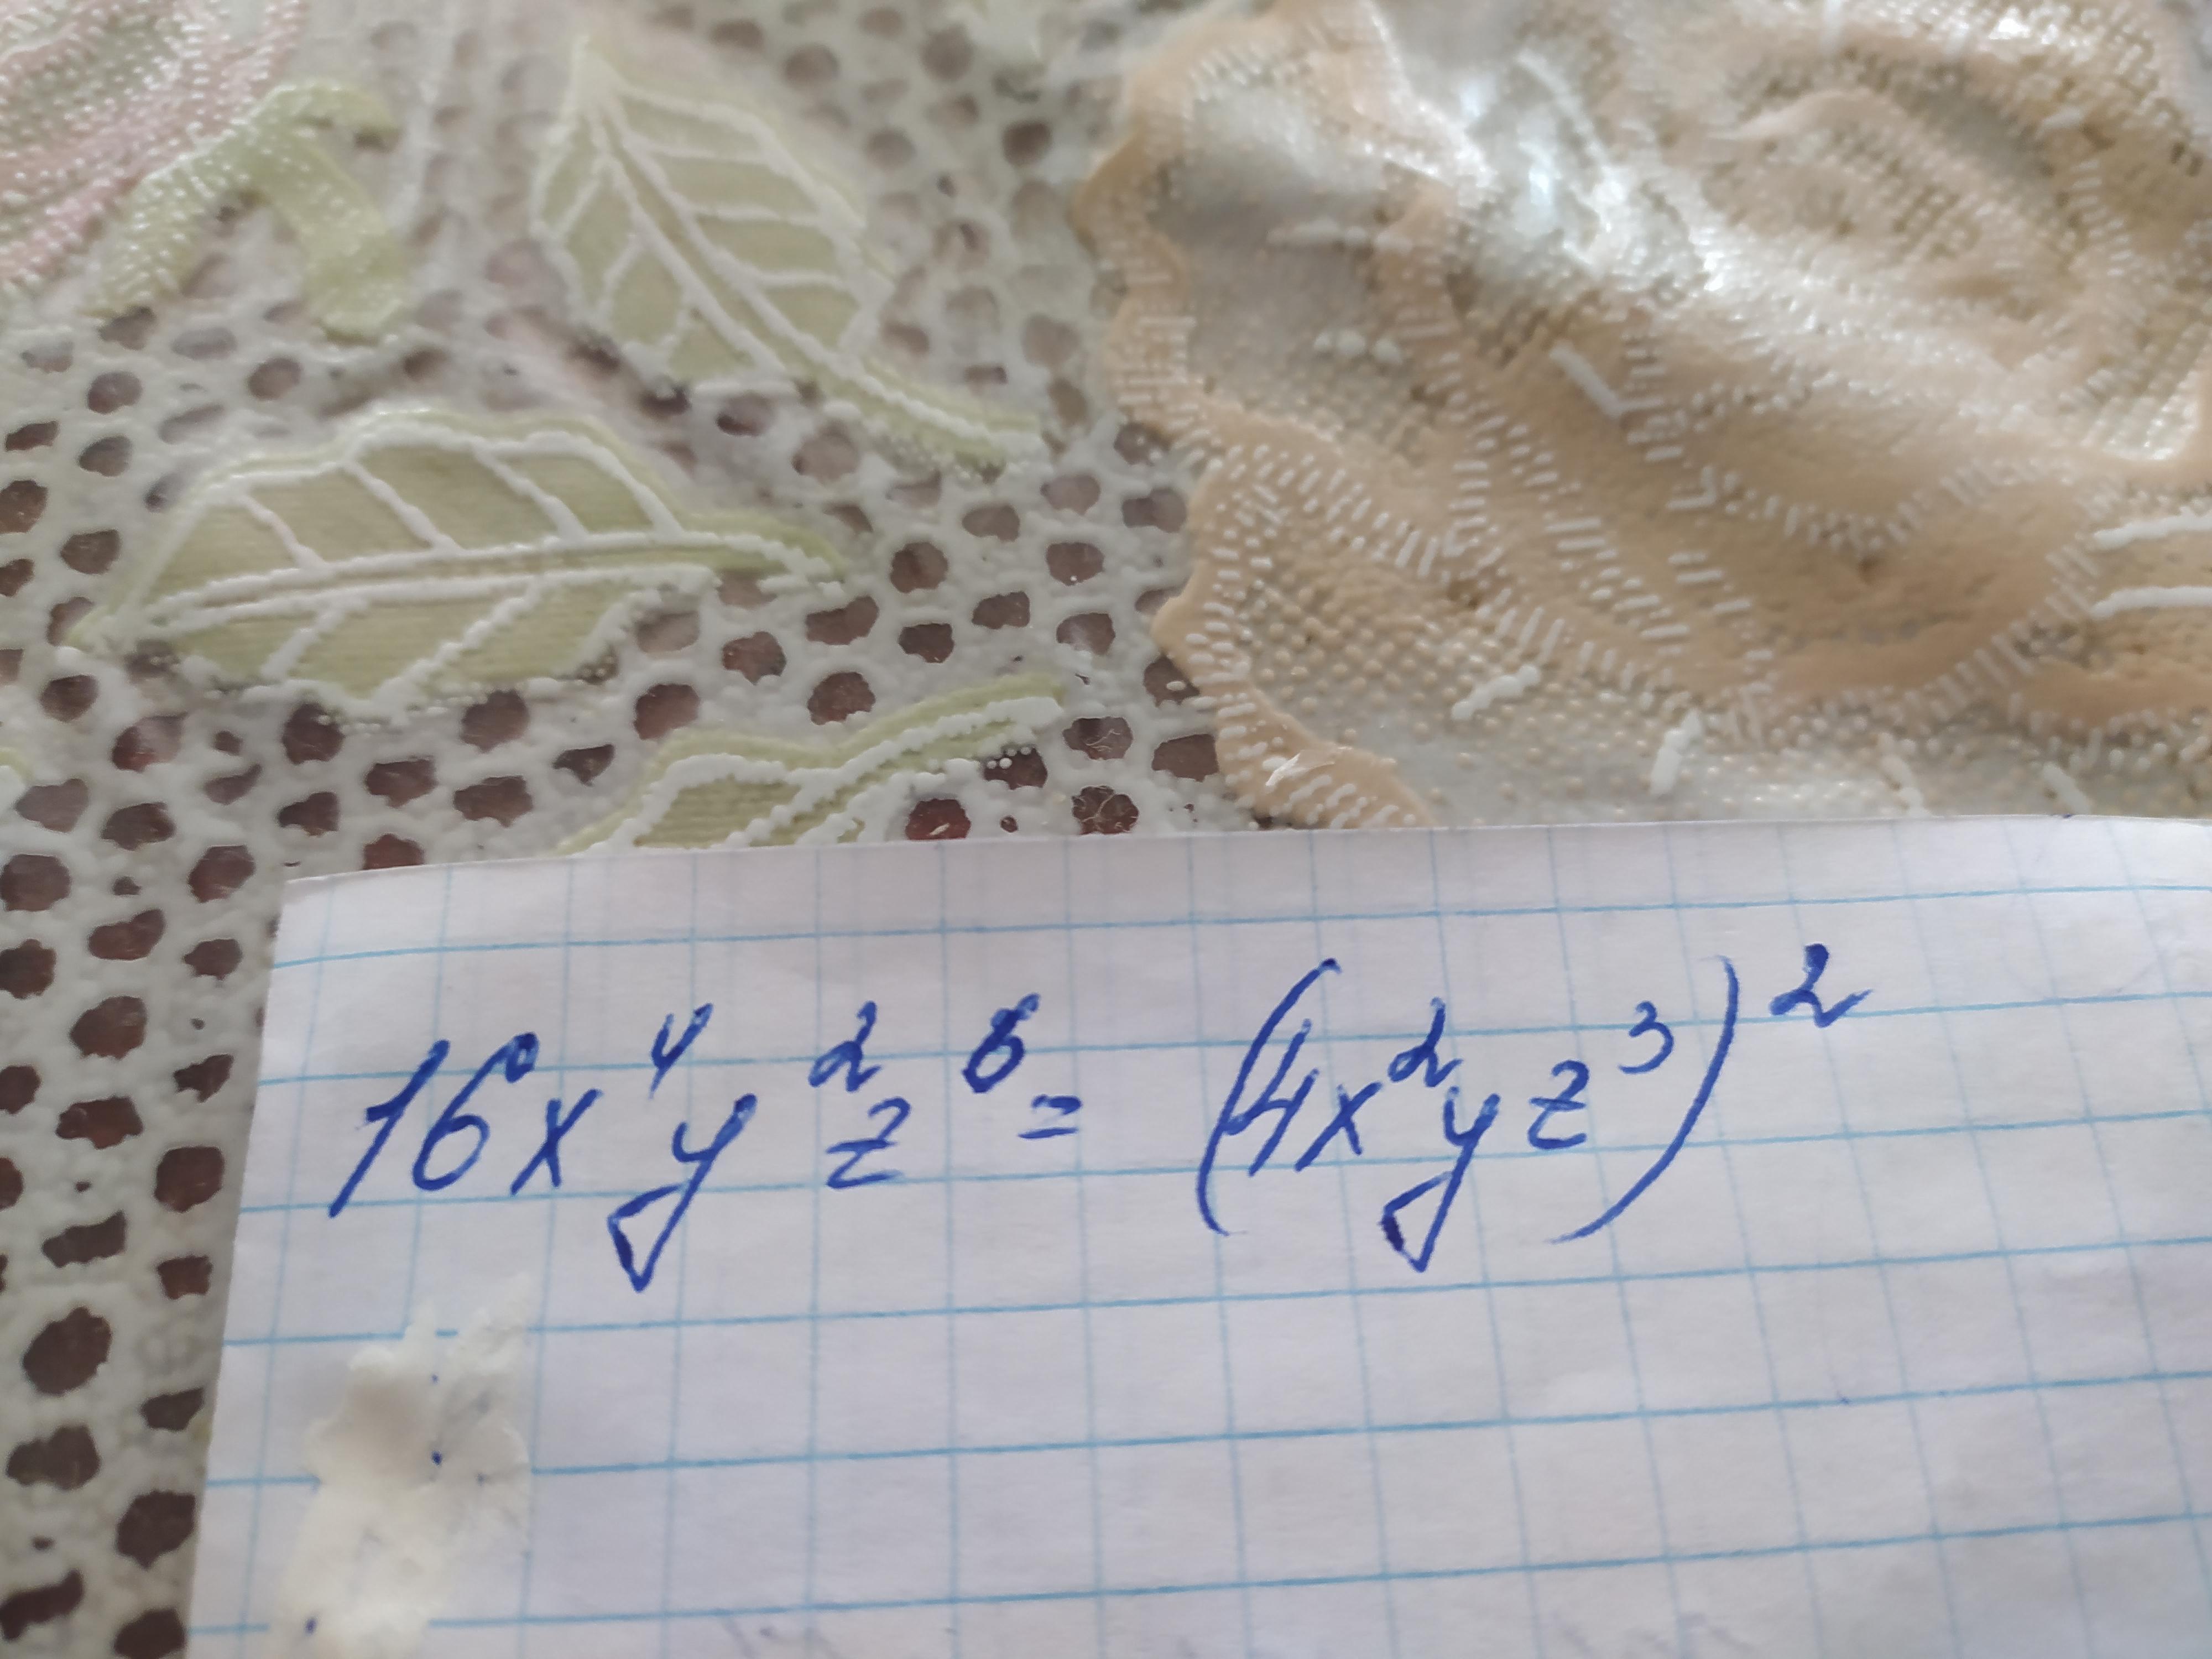 16x⁴y²z⁶ = (4x²yz³)²